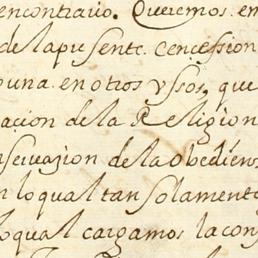 encontrario. Queremos en
de la presente. Concession
una en otros ussos, que
acion de la Religion
nseruasion de la obedien
n lo qual tan solamente
lo qual cargamos la con